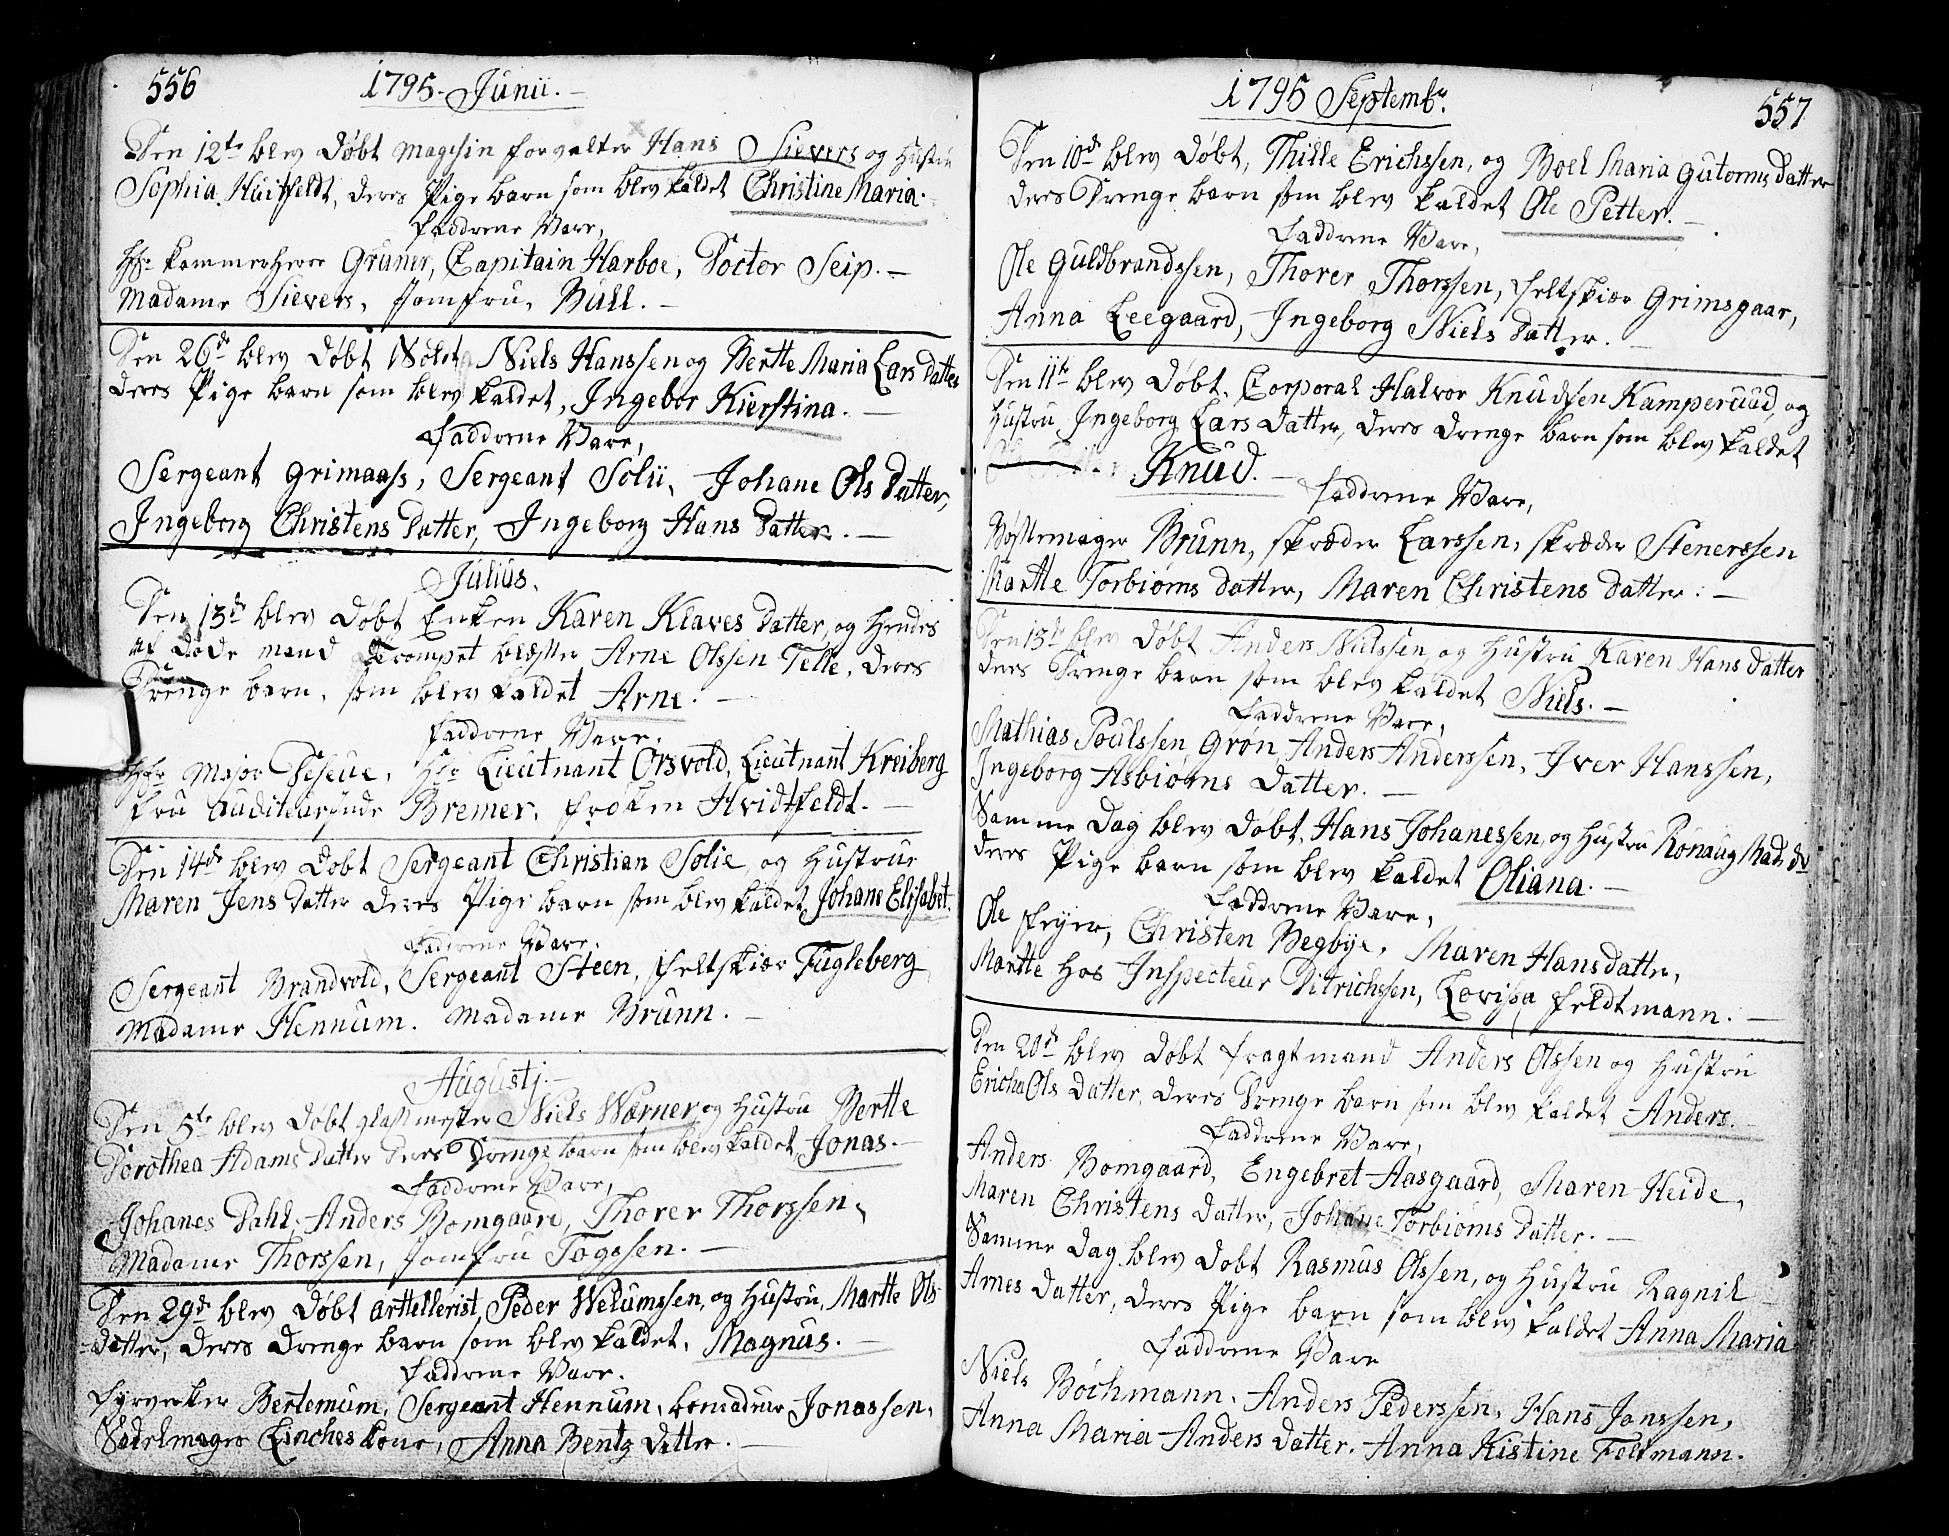 556
1795. Junii.
Den 12te blev Døbt magesin forvalter Hans Sievers og Hustru
Sophia Huitfeldt, deres Pige barn som blev kaldet Christine Maria.
Faddrene Vare,
Hr. kammerHerre Gruner, Capitain Harboe, Doctor Seip.
Madame Sievers, Jomfru Bull.
Den 26de blev Døbt Niels Hanssen og Bertte Maria Lars datter
deres Pige barn som blev kaldet, Ingebor Kierstina.
Faddrene Vare,
Sergeant Grimaass, Sergeant Solii, Johane Ols Datter,
Ingeborg Christens Datter, Ingeborg Hans Datter.
Julius.
Den 13de blev Døbt Enken Karen Klaves Datter, og Hendes
af døde mand Trompet blæsser Arne Olssen Telle, deres
Drenge barn, som blev kaldet Arne.
Faddrene Vare.
Hr. Major Scheue, Hr. Lieutnant Orsvold, Lieutnant Kreiberg
Fru auditeurinde Bremer, Frøken Hvidtfeldt.
Den 14de blev Døbt Sergeant Christian Solie, og Hustrue
Maren Jens Datter deres Pige barn som blev kaldet, Johane Elisabet.
Faddrene Vare.
Sergeant Brandvold, Sergeant Steen, Feltskiær Fugleberg
Madame Hennum. Madame Brunn.
Augustj.
Den 5te blev Døbt glasmester Niels Wærner, og Hustru Bertte
Dorothea Adams Datter Deres Drenge barn som blev kaldet, Jonas.
Faddrene Vare,
Johanes Dahl, Anders Bomgaard, Thorer Thorssen,
Madame Thorssen, Jomfru Togssen.
Den 29de blev Døbt arttellerist, Peder Welumssen, og Hustru, Martte Ols
datter, deres drenge barn som blev kaldet, Magnus.
Faddrene Vare.
Fyrverker Bertemum, Sergeant Hennum, bomadeur Jonassen,
Sadelmager Linches kone, Anna Bentz Datter.
1795 Septembr.
557
Den 10de blev Døbt, Thille Erichssen, og Boel Maria Gutorms Datter
deres Drenge barn som blev kaldet Ole Petter.
Faddrene Vare,
Ole Guldbrandssen, Thorer Thorssen, Feltskiær Grimsgaar,
Anna Leegaard, Ingeborg Niels Datter.
Den 11te blev Døbt, Corporal Halvor Knudsen Kamperuud, og
Hustru Ingeborg Lars Datter, deres drenge barn som blev kaldet
Knud.
Faddrene Vare,
Bøssemager Brunn, skræder Larssen, skræder Stenerssen
Martte Torbiørns Datter, Maren Christens Datter.
Den 13de blev Døbt Anders Nielssen og Hustru Karen Hans Datter
deres Drenge barn som blev kaldet Niels.
Faddrene Vare,
Mathias Poulssen Grøn Anders Anderssen, Iver Hanssen,
Ingeborg Asbiørns Datter.
Samme Dag blev Døbt, Hans Johanessen, og Hustru Rønaug Mads dr
deres Pige barn som blev kaldet Oliana.
Faddrene Vare,
Ole Feyer, Christen Begbye, Maren Hansdatter,
Martte hos Inspecteur Ditrichssen, Lovissa Feldtmann.
Den 20de blev Døbt fragtmand Anders Olssen og Hustru
Ericha Ols Datter, deres Drenge barn som blev kaldet Anders.
Faddrene Vare,
Anders Bomgaard, Engebret Aasgaard, Maren Heide,
Maren Christens Datter, Johane Torbiørns Datter.
Samme Dag blev Døbt Rasmus Olssen, og Hustru Ragnil
Arnes Datter, deres Pige barn som blev kaldet Anna Maria
Faddrene Vare
Niels Bøchmann, Anders Pederssen, Hans Janssen,
Anna Maria Anders Datter. Anna Kistine Feltmann.